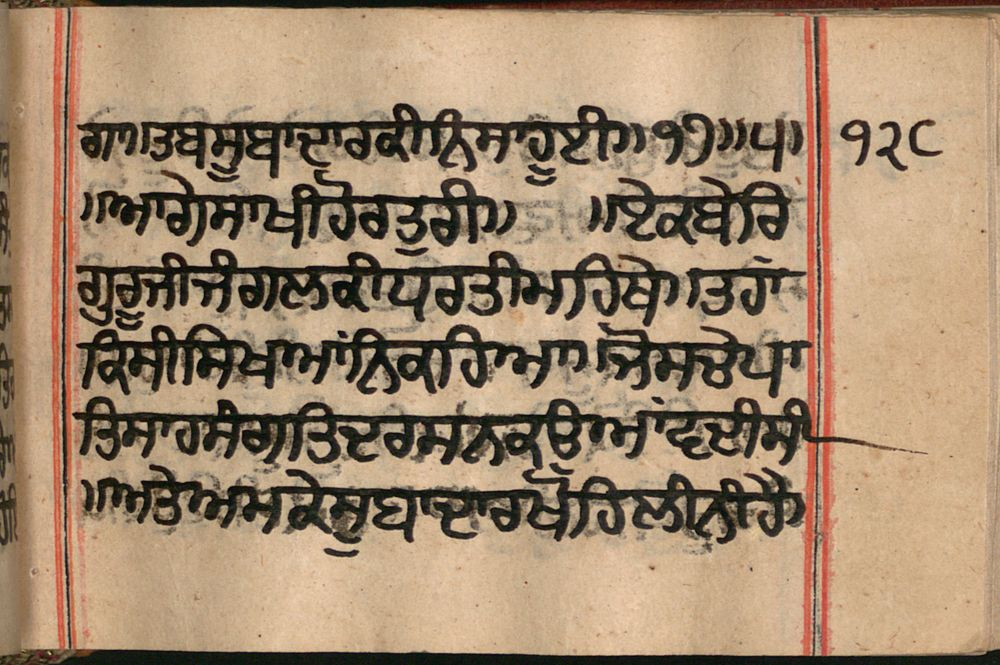 ਗਾ॥ਤਬਸੂਬਾਦਾਰਕੀਨਿਸਾਹੂਈ॥੧੭॥੫॥ ੧੨੮
॥ਆਗੇਸਾਖੀਹੋਰਤੁਰੀ॥ ॥ਏਕਬੇਰਿ
ਗੁਰੂਜੀਜੰਗਲਕੀਧਰਤੀਮਹਿਥੇ।ਤਹਾਂ
ਕਿਸੀਸਿਖਆਂਨਿਕਹਿਆ।ਜੋਮਚੋਪਾ
ਤਿਸਾਹਸੰਗਤਿਦਰਸਨਕਉਆਂਵਦੀਸੀ
॥ਅਤੇਅਮਕੇਸੂਬਾਦਾਰਖੋਹਿਲੀਨੀਹੈ